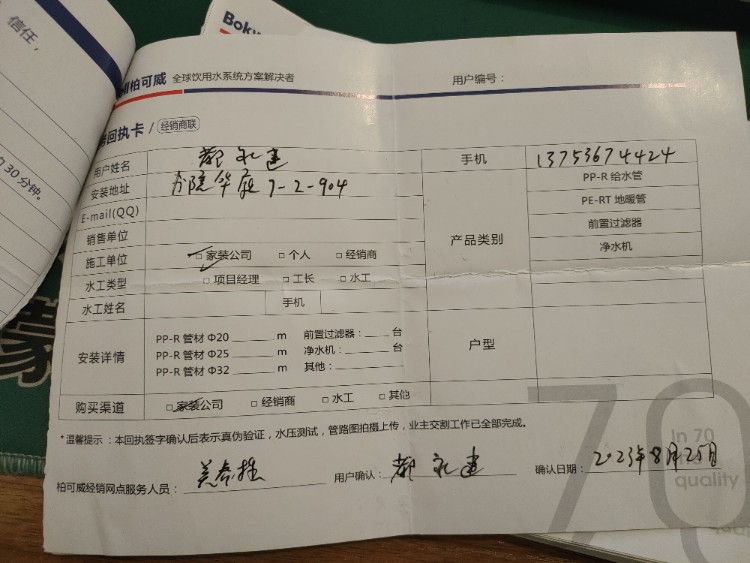 信任，
30分钟。
Boky
柏可威 全球饮用水系统方案解决者
用户编号：
回执卡 / 经销商联
用户姓名 都礼建 手机 13753674424
安装地址 汾院华庭 7-2-904 产品类别 PP-R 给水管
E-mail(QQ) PE-RT 地暖管
销售单位 前置过滤器
施工单位 □家装公司 □个人 □经销商 净水机
水工类型 □项目经理 □工长 □水工
水工姓名 手机
安装详情 PP-R 管材 Φ20 m 前置过滤器： 台 户型
PP-R 管材 Φ25 m 净水机： 台
PP-R 管材 Φ32 m 其他：
购买渠道 □家装公司 □经销商 □水工 □其他
*温馨提示：本回执签字确认后表示真伪验证，水压测试，管路图拍摄上传，业主交割工作已全部完成。
柏可威经销网点服务人员： 用户确认：都礼建 确认日期：2023年8月25日
70
In 70
quality